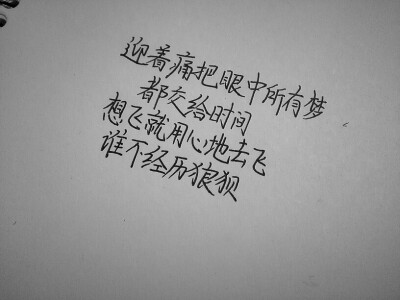 迎着痛把眼中所有梦
都交给时间
想飞就用心地去飞
谁不经历狼狈